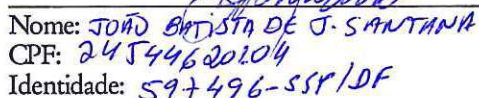 Nome: JOÃO BATISTA DE J. SANTANA
CPF: 24544620204
Identidade: 597496-SSP/DF